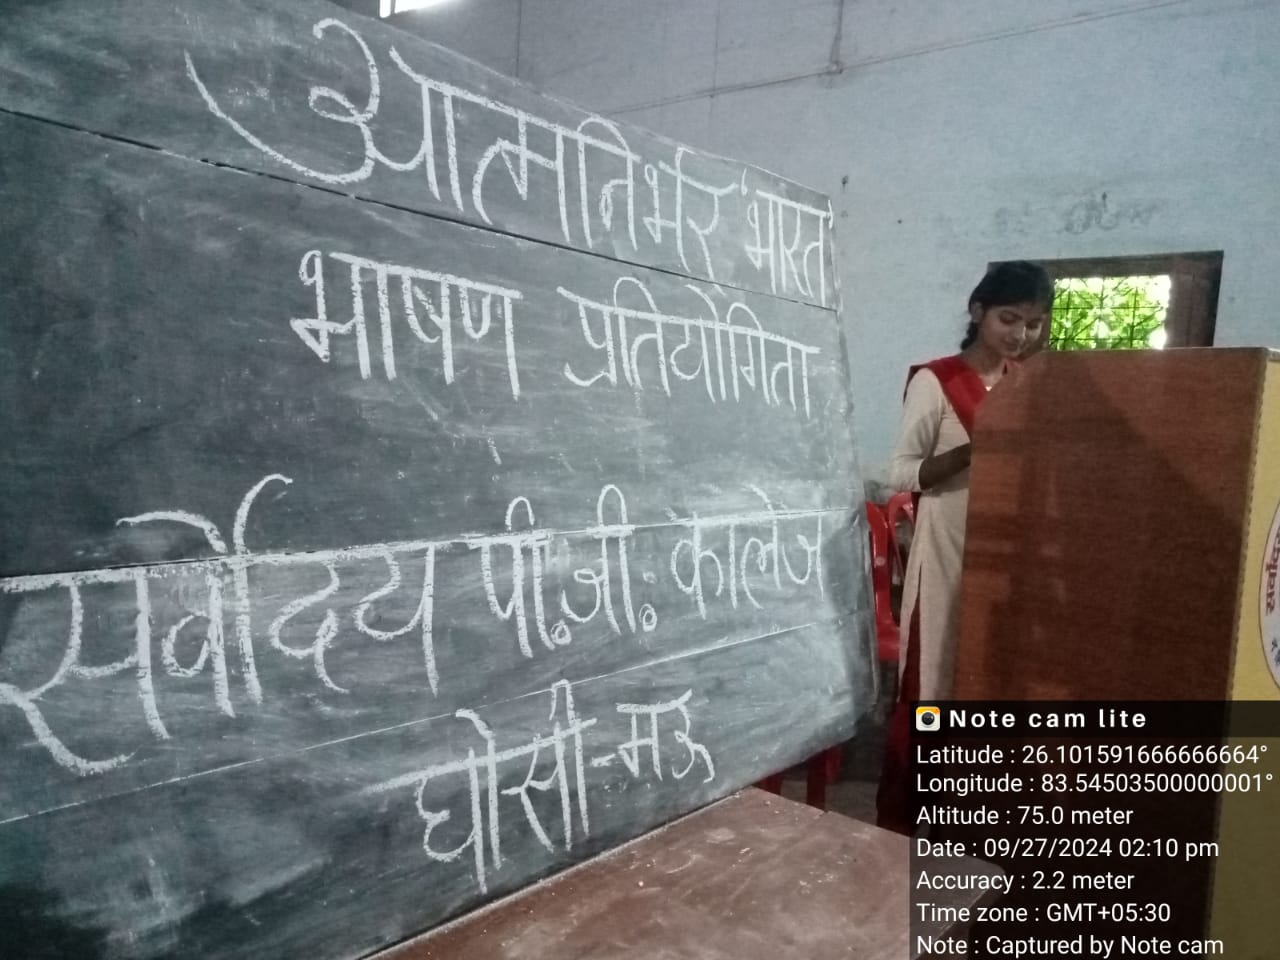 आत्मनिर्भर 'भारत'
भाषण प्रतियोगिता
सर्वोदय पी.जी. कालेज
घोसी-मऊ
Note cam lite
Latitude : 26.101591666666664°
Longitude : 83.54503500000001°
Altitude : 75.0 meter
Date : 09/27/2024 02:10 pm
Accuracy : 2.2 meter
Time zone : GMT+05:30
Note : Captured by Note cam